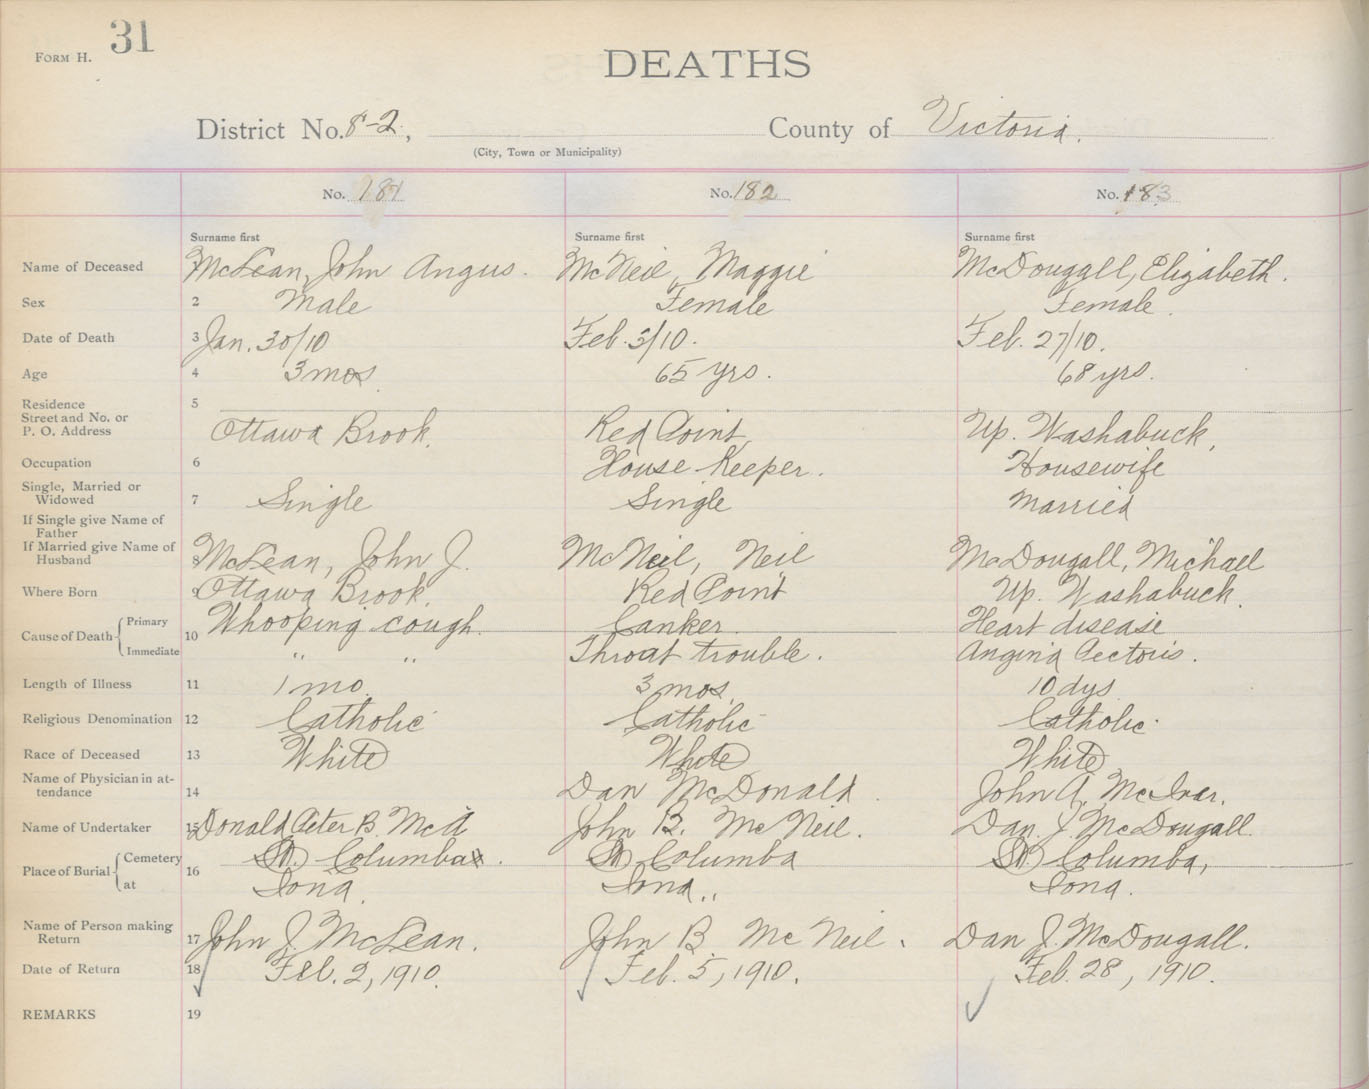 FORM H. 31
DEATHS
District No. 8-2, County of Victoria.
(City, Town or Municipality)
No. 181 No. 182 No. 183
Surname first Surname first Surname first
Name of Deceased 1 McLean, John Angus. McNeil, Maggie McDougall, Elizabeth.
Sex 2 Male Female Female.
Date of Death 3 Jan. 30/10 Feb. 3/10. Feb. 27/10.
Age 4 3 mos. 65 yrs. 68 yrs.
Residence 5
Street and No. or
P. O. Address Ottawa Brook. Red Point, Up. Washabuck,
Occupation 6 House Keeper. Housewife
Single, Married or
Widowed 7 Single Single Married
If Single give Name of
Father
If Married give Name of
Husband 8 McLean, John J. McNeil, Neil McDougall, Michael
Where Born 9 Ottawa Brook. Red Point Up. Washabuck.
Cause of Death Primary 10 Whooping cough. Canker. Heart disease
Immediate " " Throat trouble. Angina Pectoris.
Length of Illness 11 1 mo. 3 mos. 10 dys.
Religious Denomination 12 Catholic Catholic Catholic.
Race of Deceased 13 White White White
Name of Physician in at-
tendance 14 Dan McDonald. John A. McIvar.
Name of Undertaker 15 Donald Peter B. McA John B. McNeil. Dan. J. McDougall.
Place of Burial Cemetery 16 St. Columba. St. Columba St. Columba,
at Iona. Iona., Iona.
Name of Person making
Return 17 John J. McLean. John B McNeil. Dan J. McDougall.
Date of Return 18 Feb. 2, 1910. Feb. 5, 1910. Feb. 28, 1910.
REMARKS 19